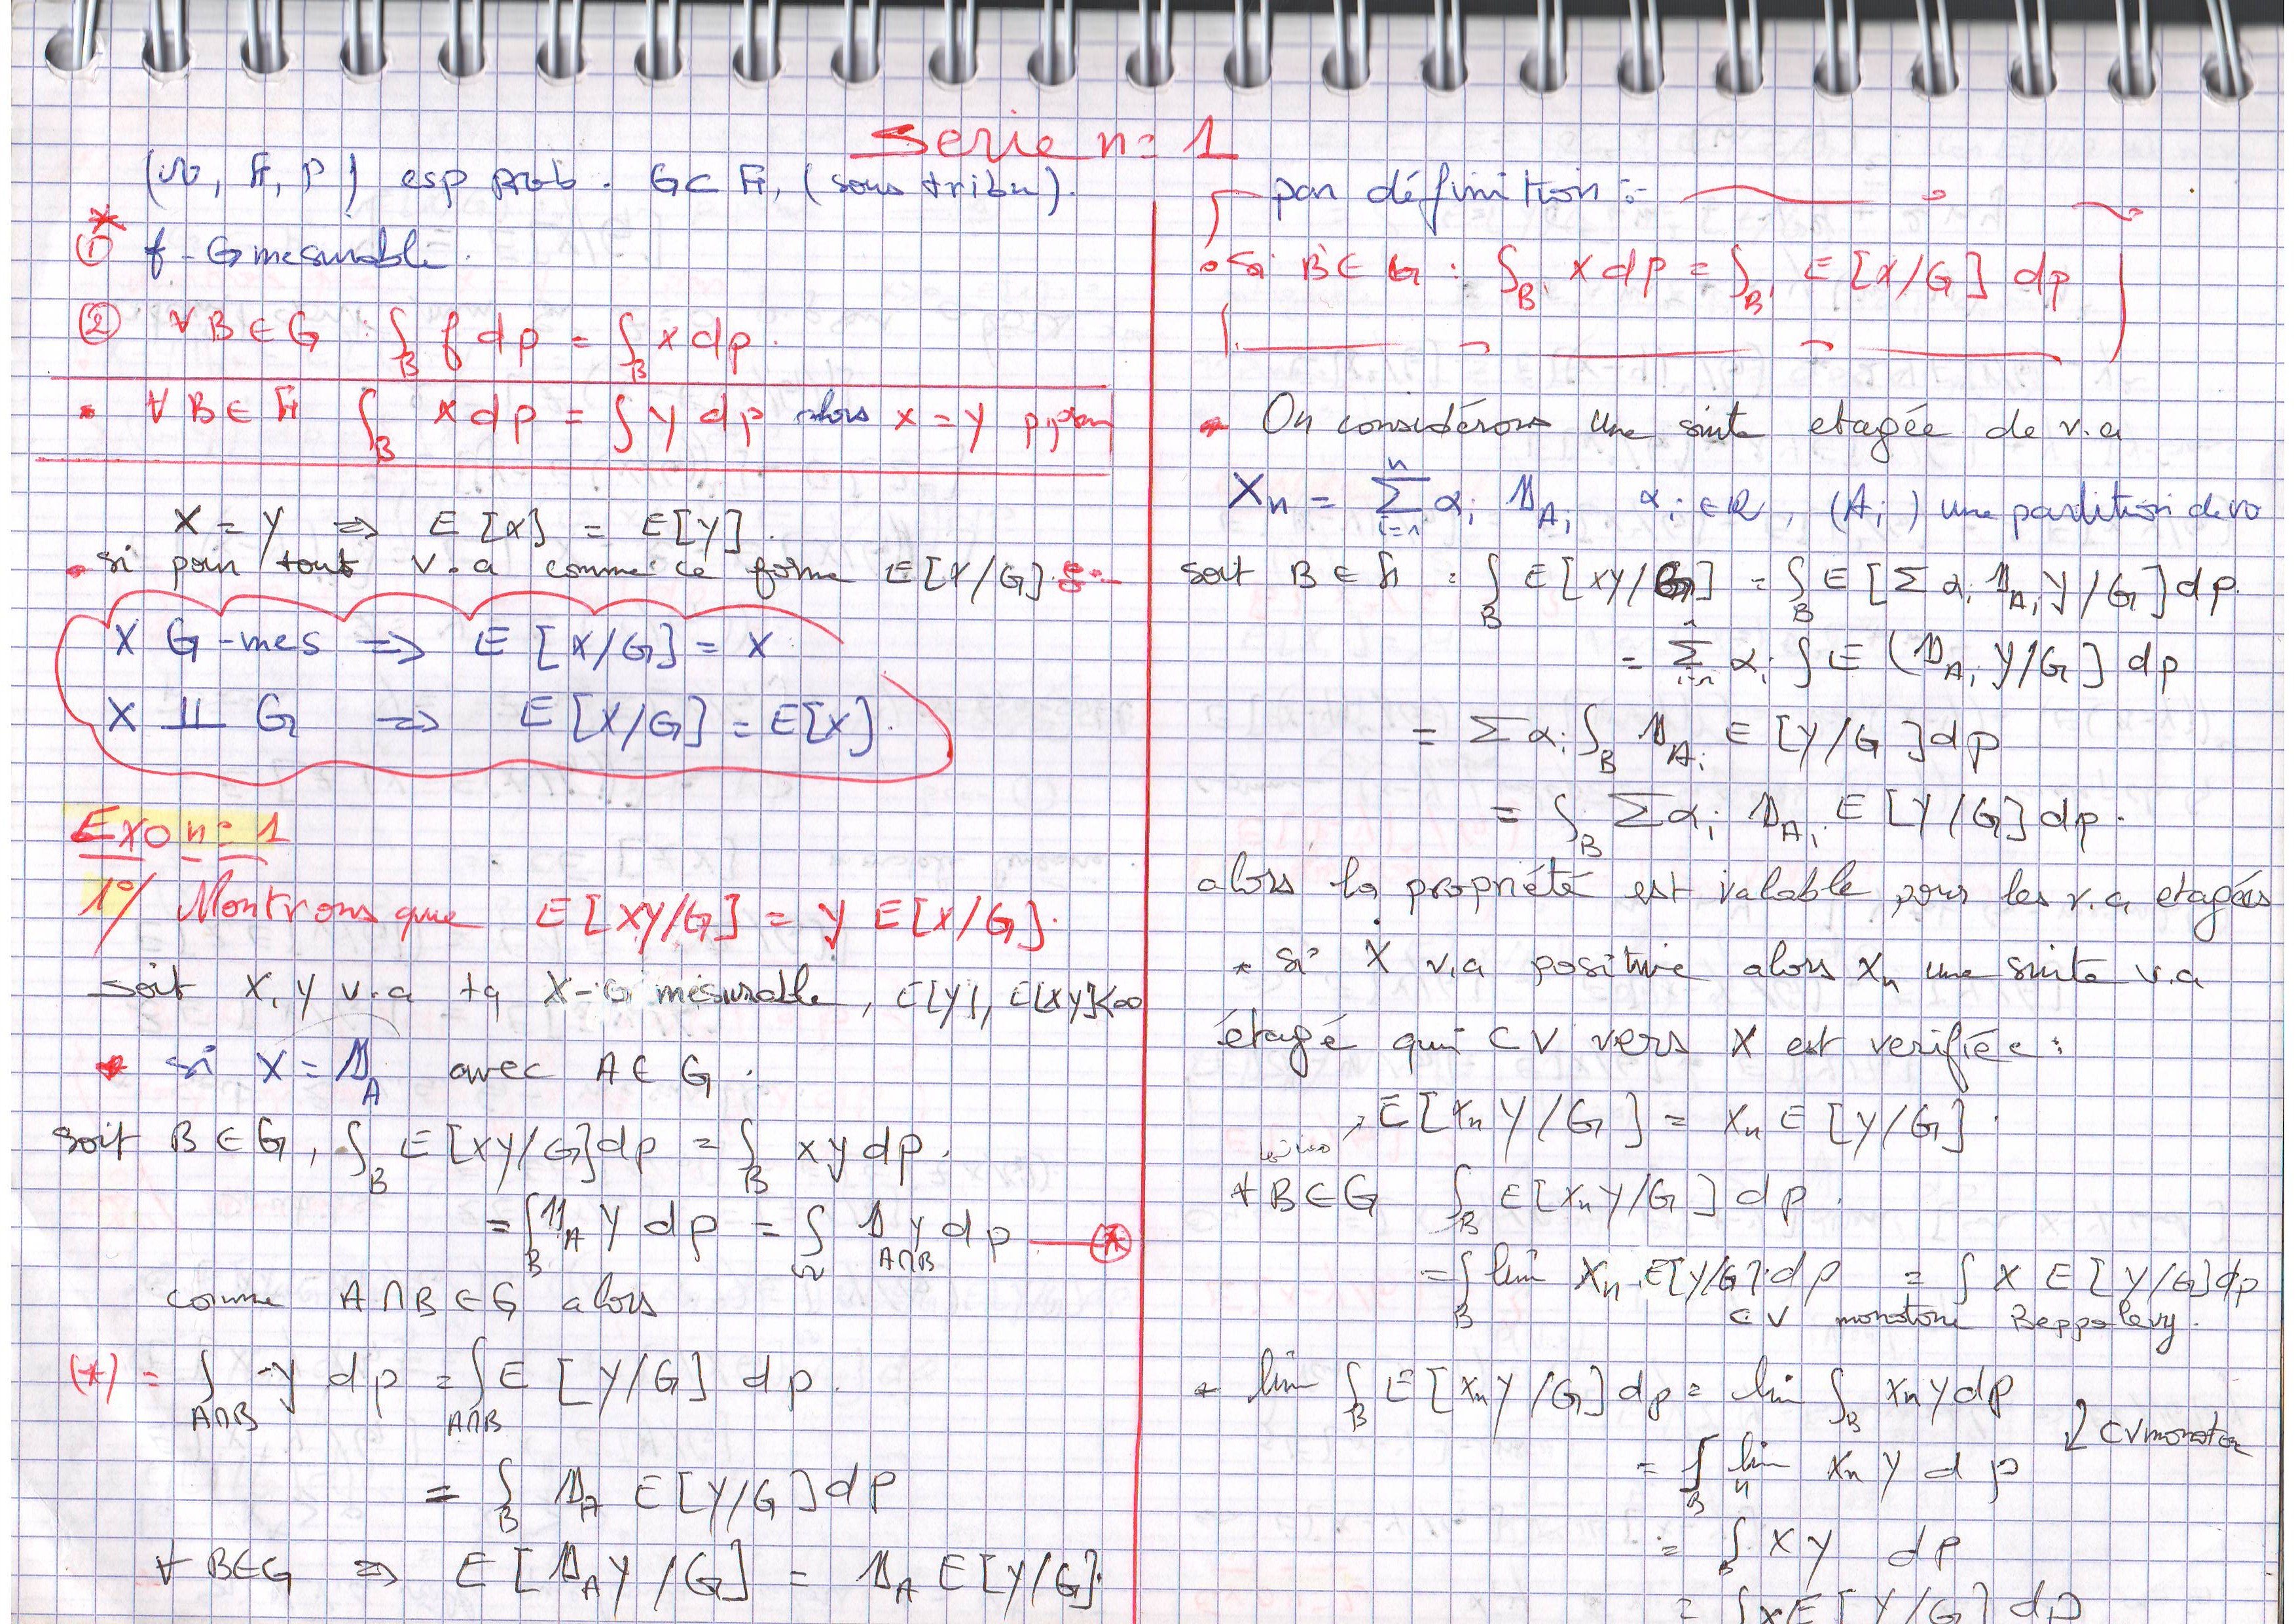 Serie n= 1
(Ω, F, P) esp prob. G⊂ F, (sous tribu).
① f - G mesurable.
② ∀ B ∈ G : ∫_B f dp = ∫_B x dp.
• ∀ B ∈ F ∫_B x dp = ∫ y dp alors x = y p.
X = Y ⇒ E[X] = E[Y].
• si pour tout v.a comme ce forme E[X/G] :-
X G-mes ⇒ E[X/G] = X
X ⊥⊥ G ⇒ E[X/G] = E[X].
Exo n= 1
1°/ Montrons que E[XY/G] = Y E[X/G].
soit X, Y v.a tq X-G mesurable, E[Y], E[XY]<∞
• si X = 1_A avec A ∈ G.
soit B ∈ G, ∫_B E[XY/G] dp = ∫_B xy dp.
= ∫_B 1_A Y dp = ∫_Ω 1_{A∩B} y dp — (*)
comme A∩B ∈ G alors
(*) = ∫_{A∩B} y dp = ∫_{A∩B} E[Y/G] dp.
= ∫_B 1_A E[Y/G] dp
∀ B∈G ⇒ E[1_A Y/G] = 1_A E[Y/G].
par définition :-
• si B ∈ G : ∫_B x dp = ∫_B E[X/G] dp
• On considérons une suite etagée de v.a
X_n = Σ_{i=n}^n α_i 1_{A_i} α_i ∈ R, (A_i) une partition de Ω
soit B ∈ G : ∫_B E[XY/G] = ∫_B E[Σ α_i 1_{A_i} Y/G] dp.
= Σ α_i ∫ E(1_{A_i} Y/G] dp
= Σ α_i ∫_B 1_{A_i} E[Y/G] dp
= ∫_B Σ α_i 1_{A_i} E[Y/G] dp.
alors la propriété est valable pour les v.a etagées
* si X v.a positive alors X_n une suite v.a
étagé qui CV vers X est verifiée :
E[X_n Y/G] = X_n E[Y/G].
∀ B∈G ∫_B E[X_n Y/G] dp.
= ∫_B lim X_n E[Y/G] dp = ∫ X E[Y/G] dp
CV monotone Beppo levy.
* lim ∫_B E[X_n Y/G] dp = lim ∫_B X_n Y dp
↓ CV monoton
= ∫_B lim_n X_n Y dp
= ∫_B XY dp
= ∫ X E[Y/G] dp